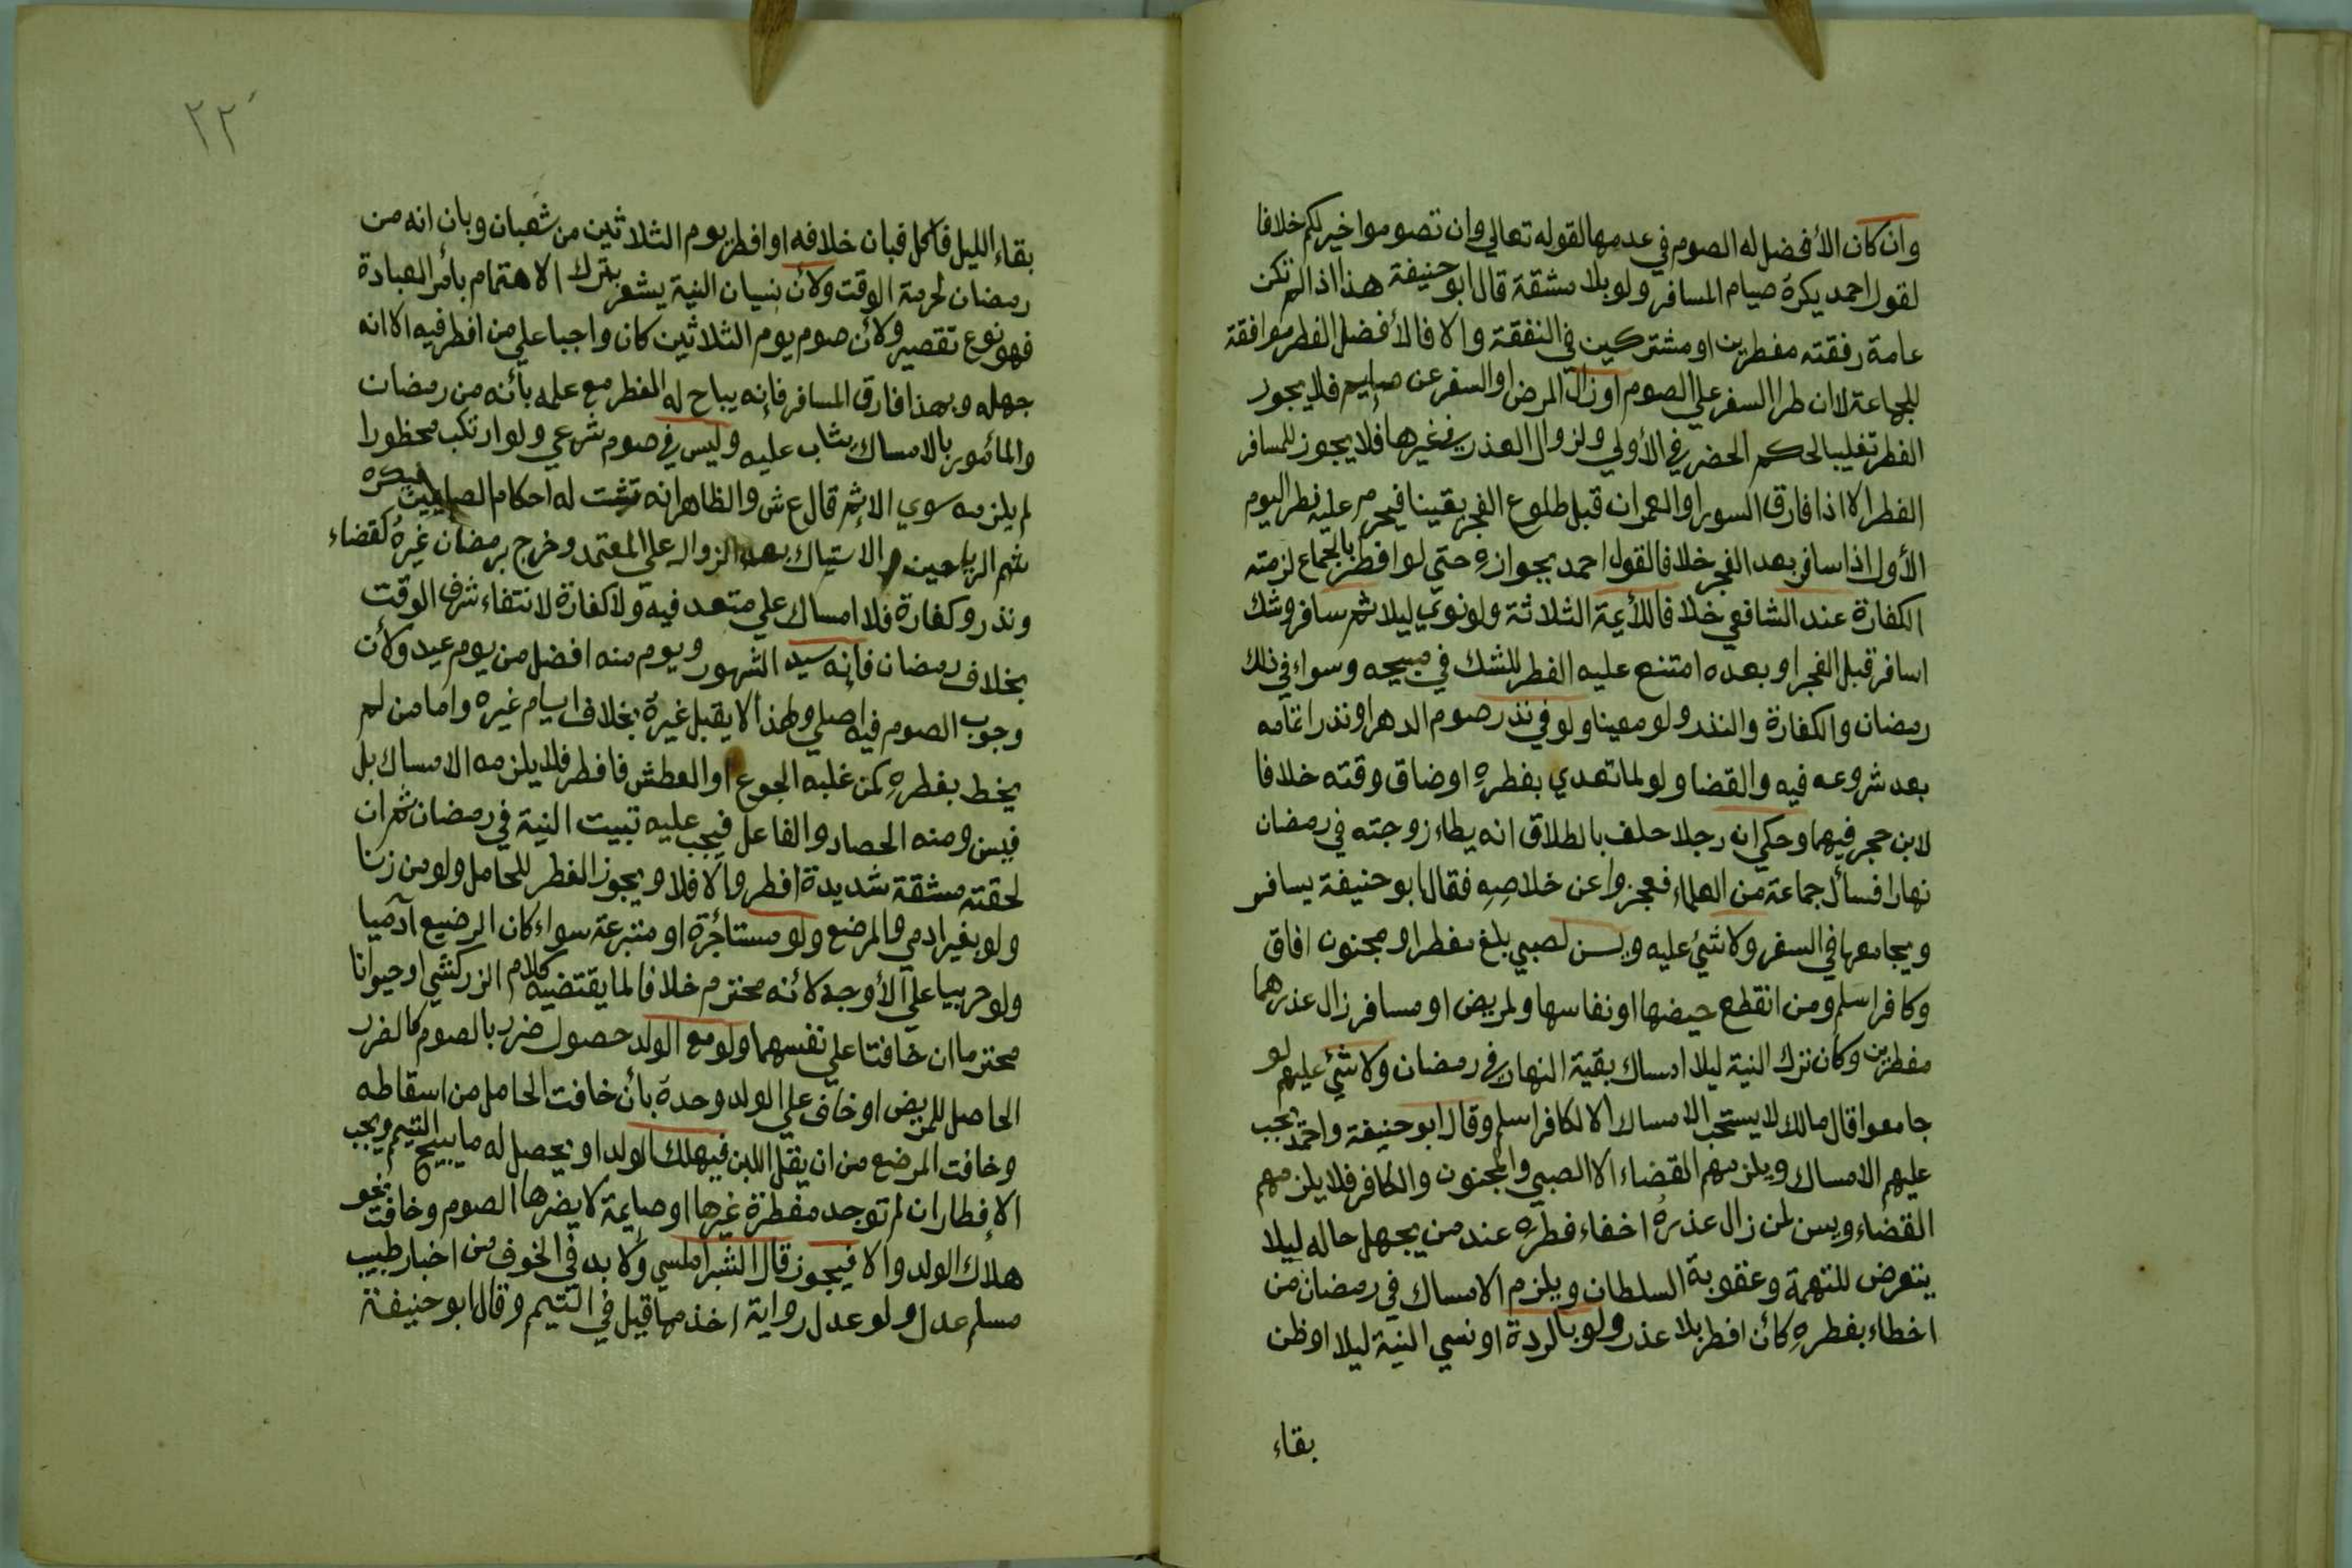 وان كان الأفضل له الصوم في عدمها لقوله تعالي وان تصوموا خير لكم خلافا
لقول احمد يكره صيام المسافر ولو بلا مشقة قال ابو حنيفة هذا اذا لم تكن
عامة رفقته مفطرين او مشتركين في النفقة والا فالأفضل الفطر موافقة
للجماعة لا ان طرا السفر علي الصوم او زال المرض او السفر عن صايم فلا يجوز
الفطر تغليبا لحكم الحضر في الأولي ولزوال العذر في غيرها فلا يجوز للمسافر
الفطر الا اذا فارق السور او العمران قبل طلوع الفجر يقينا فيحرم عليه فطر اليوم
الأول اذا سافر بعد الفجر خلافا لقول احمد بجوازه حتي لو افطر بالجماع لزمته
الكفارة عند الشافعي خلافا للأيمة الثلاثة ولو نوي ليلا ثم سافر وشك
اسافر قبل الفجر او بعده امتنع عليه الفطر للشك في مبيحه وسواء في ذلك
رمضان والكفارة والنذر ولو معينا ولو في نذر صوم الدهر او نذر اتمامه
بعد شروعه فيه والقضا ولو لما تعدي بفطره او ضاق وقته خلافا
لابن حجر فيهما وحكي ان رجلا حلف بالطلاق انه يطاء زوجته في رمضان
نهارا فسأل جماعة من العلماء فعجزوا عن خلاصه فقال ابو حنيفة يسافر
ويجامعها في السفر ولا شيئ عليه ويسن لصبي بلغ مفطرا ومجنون افاق
وكافر اسلم ومن انقطع حيضها او نفاسها ولمريض او مسافر زال عذرهما
مفطرين وكأن ترك النية ليلا امساك بقية النهار في رمضان ولا شيئ عليهم لو
جامعوا قال مالك لا يستحب الامساك الا لكافر اسلم وقال ابو حنيفة واحمد يجب
عليهم الامساك ويلزمهم القضاء الا الصبي والمجنون والكافر فلا يلزمهم
القضاء ويسن لمن زال عذره اخفاء فطره عند من يجهل حاله ليلا
يتعرض للتهمة وعقوبة السلطان ويلزم الامساك في رمضان من
اخطاء بفطره كأن افطر بلا عذر ولو بالردة او نسي النية ليلا او ظن
بقاء
٢٢
بقاء الليل فأكل فبان خلافه او افطر يوم الثلاثين من شعبان وبان انه من
رمضان لحرمة الوقت ولأن نسيان النية يشعر بترك الاهتمام بأمر العبادة
فهو نوع تقصير ولأن صوم يوم الثلاثين كان واجبا علي من افطر فيه الا انه
جهله وبهذا فارق المسافر فإنه يباح له الفطر مع علمه بأنه من رمضان
والمأمور بالامساك يثاب عليه وليس في صوم شرعي ولو ارتكب محظورا
لم يلزمه سوي الاثم قال ع ش والظاهر انه تثبت له احكام الصايمين فيكره
شم الرياحين والاستياك بعد الزوال علي المعتمد وخرج برمضان غيره كقضاء
ونذر وكفارة فلا امساك علي متعد فيه ولا كفارة لانتفاء شرف الوقت
بخلاف رمضان فإنه سيد الشهور ويوم منه افضل من يوم عيد ولأن
وجوب الصوم فيه اصلي ولهذا لا يقبل غيره بخلاف ايام غيره واما من لم
يخط بفطره كمن غلبه الجوع او العطش فافطر فلا يلزمه الامساك بل
فيسن ومنه الحصاد والفاعل فيجب عليه تبييت النية في رمضان ثم ان
لحقته مشقة شديدة افطر والا فلا ويجوز الفطر للحامل ولو من زنا
ولو بغير ادمي والمرضع ولو مستأجرة او متبرعة سواء كان الرضيع آدميا
ولو حربيا علي الأوجه لأنه محترم خلافا لما يقتضيه كلام الزركشي او حيوانا
محترما ان خافتا علي نفسهما ولو مع الولد حصول ضرر بالصوم كالضرر
الحاصل للمريض او خاف علي الولد وحده بأن خافت الحامل من اسقاطه
وخافت المرضع من ان يقل اللبن فيهلك الولد او يحصل له ما يبيح التيمم ويجب
الإفطار ان لم توجد مفطرة غيرها او صايمة لا يضرها الصوم وخافت نحو
هلاك الولد والا فيجوز قال الشبراملسي ولا بد في الخوف من اخبار طبيب
مسلم عدل ولو عدل رواية اخذ مما قيل في التيمم وقال ابو حنيفة